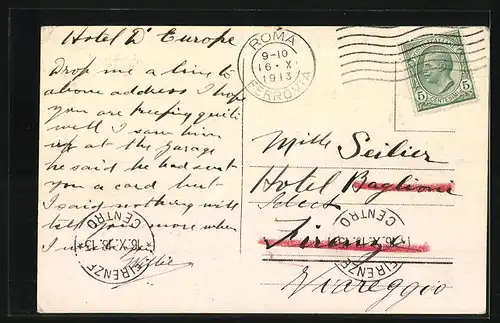 Hotel D' Europe
Drop me a line to
above address I hope
you are keeping quite
well I saw him
up at the garage
he said he had sent
you a card but
I said nothing will
tell you more when
I
Willie
ROMA
9-10
16·X
1913
FERROVIA
5
Mlle Seilier
Hotel Baglioni
Select
Firenze
Viareggio
FIRENZE
16.X.13
CENTRO
FIRENZE
16.X.13
CENTRO